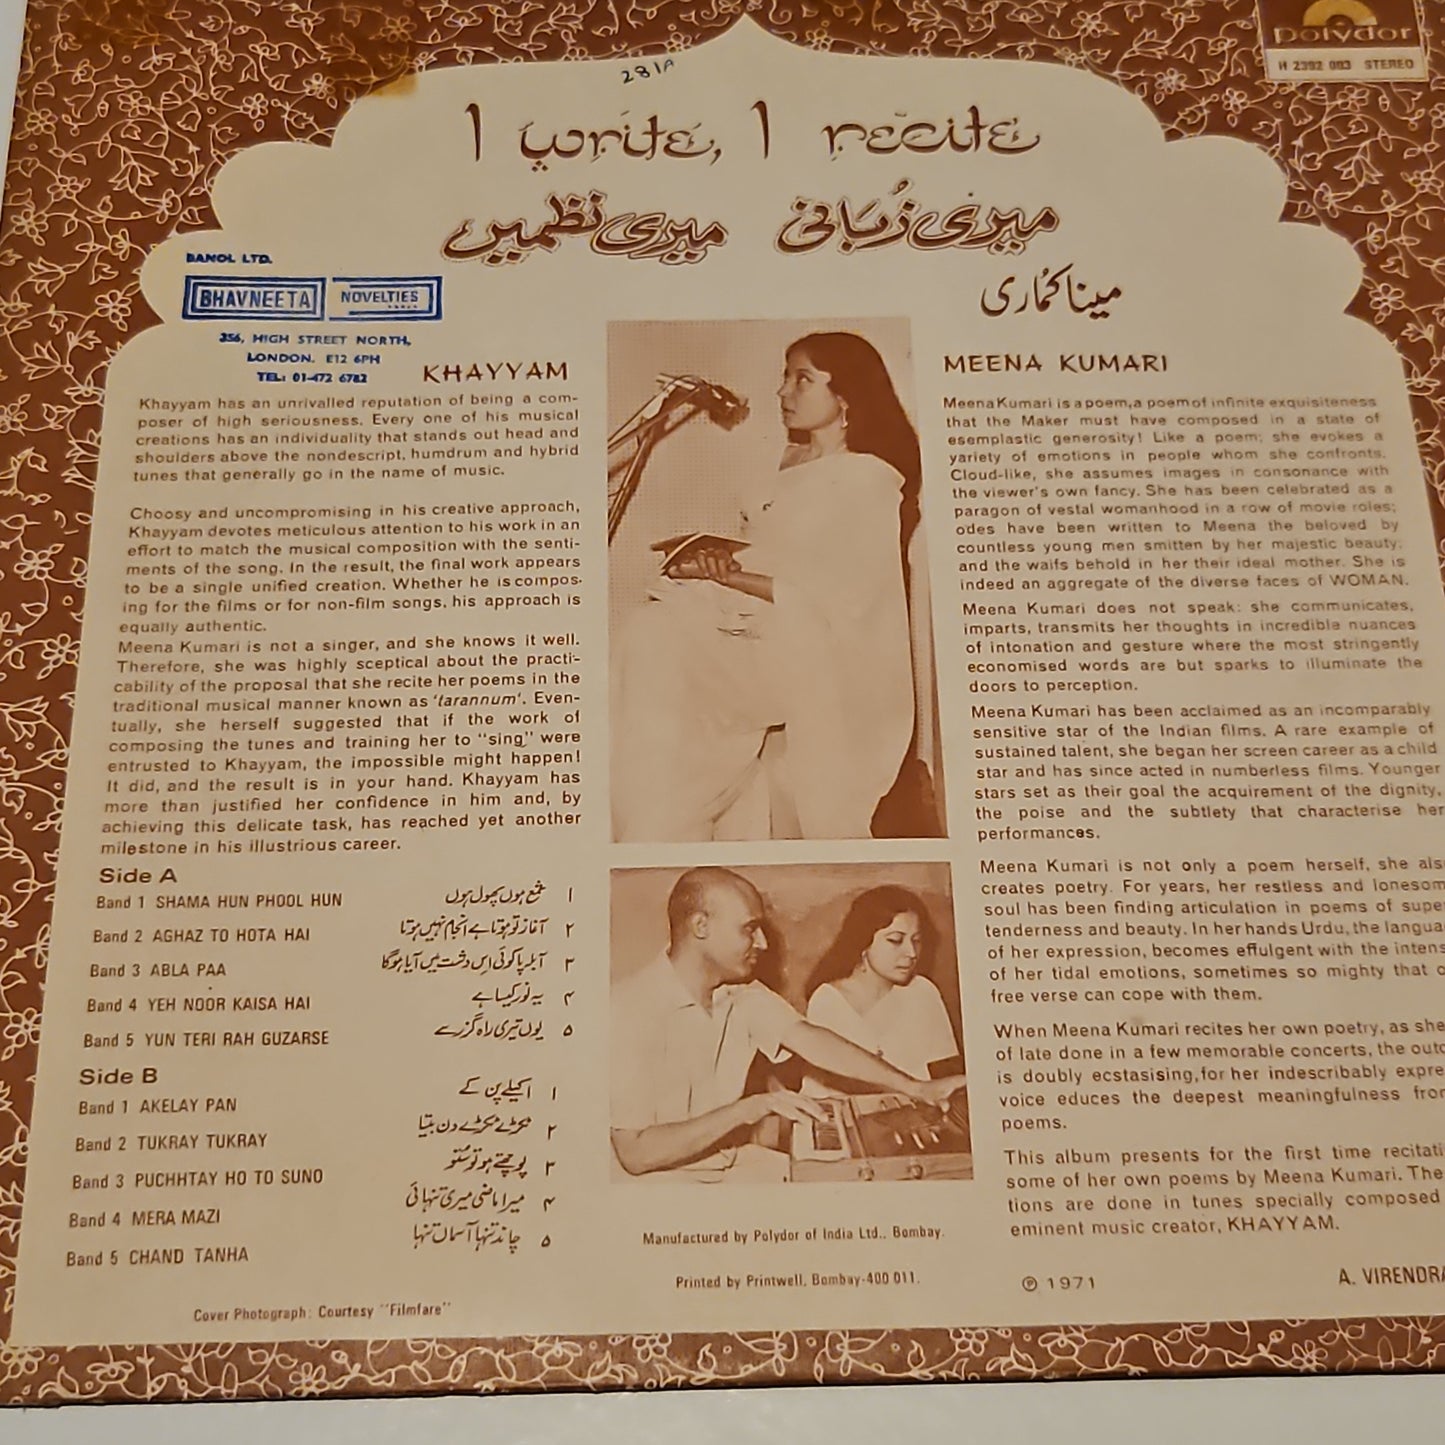 281A
polydor
H 2392 003 STEREO
I write, I recite
میری نظمیں میری زُبانی
مینا کُماری
BANOL LTD.
BHAVNEETA NOVELTIES
356, HIGH STREET NORTH,
LONDON. E12 6PH
TEL: 01-472 6782
KHAYYAM
Khayyam has an unrivalled reputation of being a com-
poser of high seriousness. Every one of his musical
creations has an individuality that stands out head and
shoulders above the nondescript, humdrum and hybrid
tunes that generally go in the name of music.
Choosy and uncompromising in his creative approach,
Khayyam devotes meticulous attention to his work in an
effort to match the musical composition with the senti-
ments of the song. In the result, the final work appears
to be a single unified creation. Whether he is compos-
ing for the films or for non-film songs, his approach is
equally authentic.
Meena Kumari is not a singer, and she knows it well.
Therefore, she was highly sceptical about the practi-
cability of the proposal that she recite her poems in the
traditional musical manner known as 'tarannum'. Even-
tually, she herself suggested that if the work of
composing the tunes and training her to "sing" were
entrusted to Khayyam, the impossible might happen!
It did, and the result is in your hand. Khayyam has
more than justified her confidence in him and, by
achieving this delicate task, has reached yet another
milestone in his illustrious career.
Side A
Band 1 SHAMA HUN PHOOL HUN ۱ شمع ہوں پھول ہوں
Band 2 AGHAZ TO HOTA HAI ۲ آغاز تو ہوتا ہے انجام نہیں ہوتا
Band 3 ABLA PAA ۳ آبلہ پا کوئی اس دشت میں آیا ہوگا
Band 4 YEH NOOR KAISA HAI ۴ یہ نور کیسا ہے
Band 5 YUN TERI RAH GUZARSE ۵ یوں تیری راہ گزر سے
Side B
Band 1 AKELAY PAN ۱ اکیلے پن کے
Band 2 TUKRAY TUKRAY ۲ ٹکڑے ٹکڑے دن بیتا
Band 3 PUCHHTAY HO TO SUNO ۳ پوچھتے ہو تو سُنو
Band 4 MERA MAZI ۴ میرا ماضی میری تنہائی
Band 5 CHAND TANHA ۵ چاند تنہا آسماں تنہا
Cover Photograph: Courtesy "Filmfare"
Manufactured by Polydor of India Ltd., Bombay.
Printed by Printwell, Bombay-400 011.
MEENA KUMARI
Meena Kumari is a poem, a poem of infinite exquisiteness
that the Maker must have composed in a state of
esemplastic generosity! Like a poem; she evokes a
yariety of emotions in people whom she confronts.
Cloud-like, she assumes images in consonance with
the viewer's own fancy. She has been celebrated as a
paragon of vestal womanhood in a row of movie roles;
odes have been written to Meena the beloved by
countless young men smitten by her majestic beauty;
and the waifs behold in her their ideal mother. She is
indeed an aggregate of the diverse faces of WOMAN.
Meena Kumari does not speak: she communicates,
imparts, transmits her thoughts in incredible nuances
of intonation and gesture where the most stringently
economised words are but sparks to illuminate the
doors to perception.
Meena Kumari has been acclaimed as an incomparably
sensitive star of the Indian films. A rare example of
sustained talent, she began her screen career as a child
star and has since acted in numberless films. Younger
stars set as their goal the acquirement of the dignity,
the poise and the subtlety that characterise her
performances.
Meena Kumari is not only a poem herself, she als
creates poetry. For years, her restless and lonesom
soul has been finding articulation in poems of supe
tenderness and beauty. In her hands Urdu, the langua
of her expression, becomes effulgent with the intens
of her tidal emotions, sometimes so mighty that o
free verse can cope with them.
When Meena Kumari recites her own poetry, as she
of late done in a few memorable concerts, the outc
is doubly ecstasising, for her indescribably expre
voice educes the deepest meaningfulness from
poems.
This album presents for the first time recitati
some of her own poems by Meena Kumari. The
tions are done in tunes specially composed
eminent music creator, KHAYYAM.
℗ 1971
A. VIRENDRA